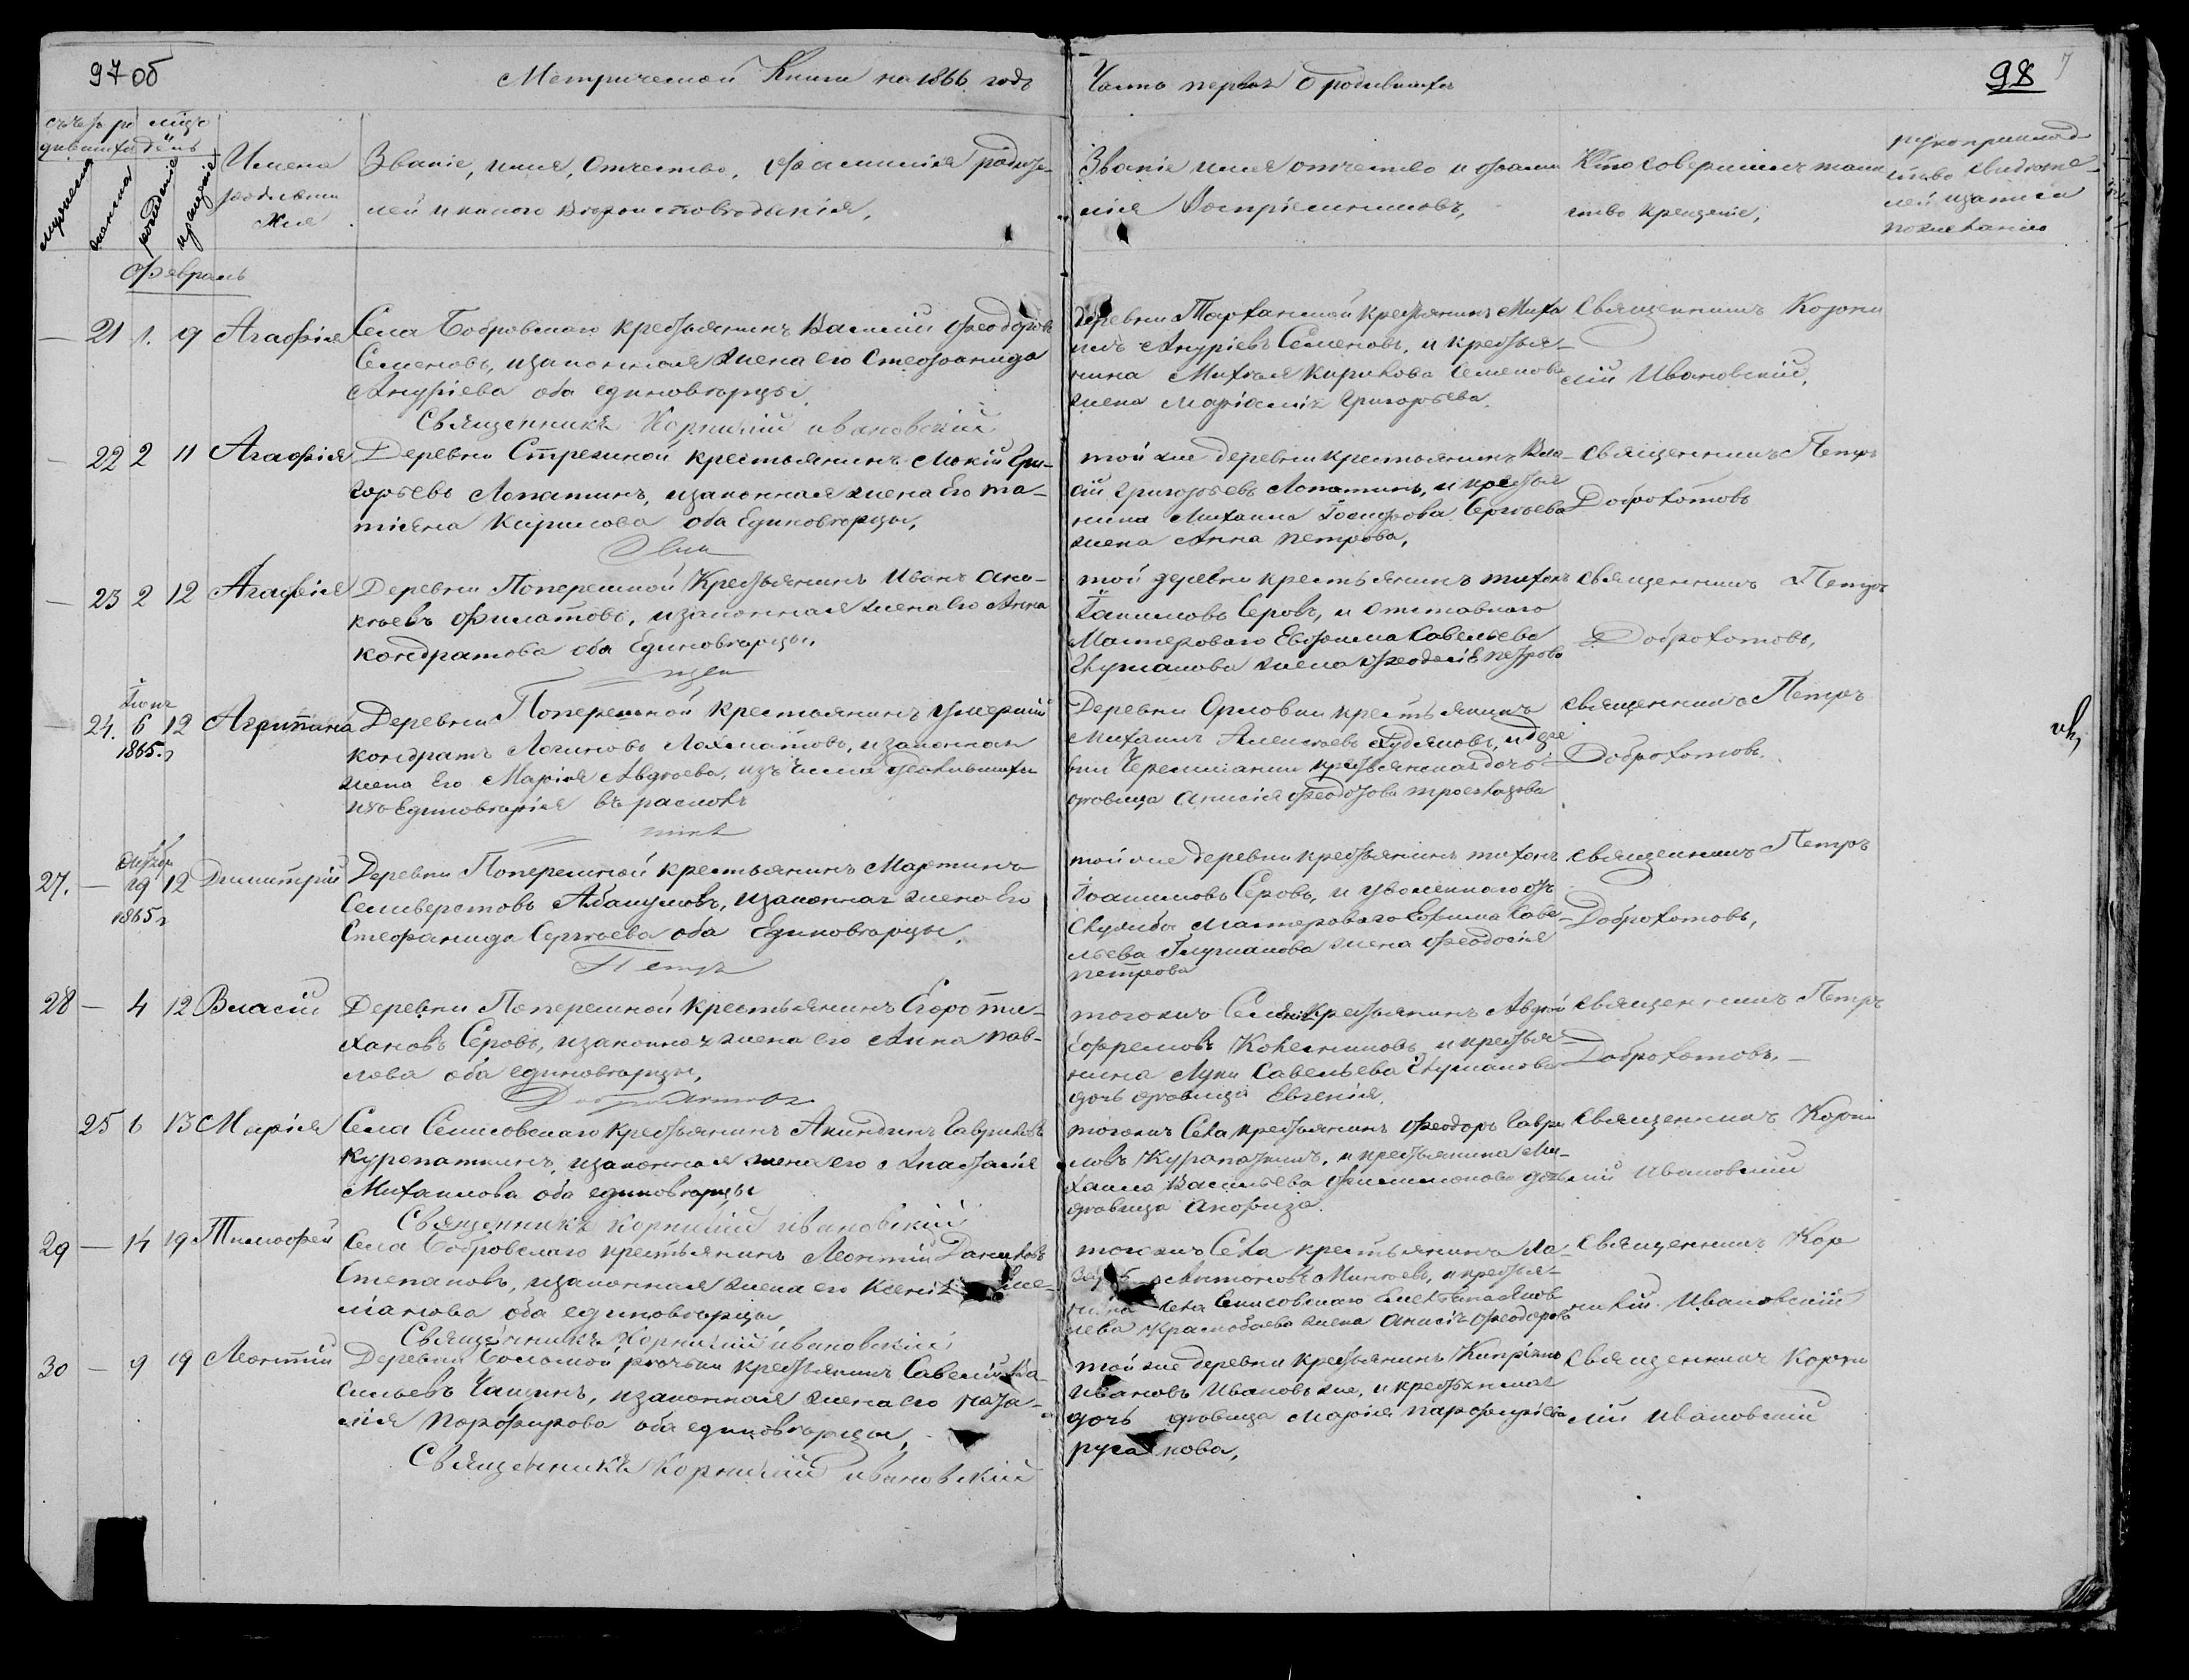 97 об
Метрической Книги на 1866 годъ
Часть первая О родившихся
98
Счетъ ро
дившихся
мужеска
женска
день
рожденіе
крещеніе
Имена
родивши
хся
Званіе, имя, Отчество, Фамилія родите-
лей и какого Вероисповеданія,
Званія имя отчество и фами
лія Воспріемниковъ,
Кто совершилъ таин
ство крещеніе,
рукоприклад
ство свидете-
лей записи
по желанію
Февраль
— 21 1. 9 Агафія
Села Бобровскаго крестьянинъ Василій Феодоровъ
Семеновъ, изаконная жена его Стефанида
Ануфріева оба единоверцы,
Священникъ Корнилій ивановскій
деревни Тарханской крестьянинъ Миха
илъ Ануріевъ Семеновъ, и крестья-
нина Михаила Кирилова Семенова
жена Маріамія Григорьева.
Священникъ Корни
лій Ивановскій,
— 22 2 11 Агафія
Деревни Стрежной крестьянинъ Мокій Гри-
горьевъ Лопатинъ, изаконная жена Его та-
тіяна Кирилова оба Единоверцы,
той же деревни крестьянинъ Вла-
сій Григорьевъ Лопатинъ, и крестья
нина Михаила Іосифова Сергеева
жена Анна петрова,
священникъ Петръ
Доброхотовъ
— 23 2 12 Агафія
Деревни Поперешной Крестьянинъ Иванъ Ана-
ньевъ Филатовъ, изаконная жена Его Анна
кондратова оба Единоверцы,
той деревни крестьянинъ тихонъ
Іакимовъ Серовъ, и отставнаго
Мастероваго Евфима Савельева
жена Феодосія петрова
священникъ Петръ
Доброхотовъ,
— 24. 6 12 Агрипина
1865.г
Деревни Поперешной крестьянинъ умершій
кондратъ Логиновъ Лохматовъ, изаконная
жена Его Марія Авдеева, изъ числа уклонившихся
изъ Единоверія въ расколъ
Деревни Орловки крестьянинъ
Михаилъ Алексеевъ Худяковъ, и дере
вни Черемшанки крестьянская дочь
девица Анисія Феодотова
священникъ Петръ
Доброхотовъ.
27. — 19 12 Димитрій
1865г
Деревни Поперешной крестьянинъ Мартинъ
Селиверстовъ Абакумовъ, изаконная жена Его
Стефанида Сергеева оба Единоверцы,
Петръ
той же деревни крестьянинъ тихонъ
Іоакимовъ Серовъ, и уволеннаго отъ
Службы мастероваго Ефима Саве-
льева жена Феодосія
петрова
священникъ Петръ
Доброхотовъ,
28 — 4 12 Власій
Деревни Поперешной крестьянинъ Егоръ ти-
хановъ Серовъ, изаконная жена его Анна пав-
лова оба единоверцы,
Доброхотовъ
тогожъ Селенія крестьянинъ Авдей
Ефремовъ и крестья-
нина Луки Савельева
дочь девица Евгенія.
священникъ Петръ
Доброхотовъ. —
25 6 13 Марія
Села Секисовскаго крестьянинъ Акиндинъ Гавриловъ
Куропаткинъ, изаконная жена его Анастасія
Михаилова оба единоверцы
Священникъ корнилій ивановскій
тогожъ Села крестьянинъ Феодоръ Гаври
ловъ Куропаткинъ, и крестьянина Ми-
хаила Васильева Филимонова дочь
девица Анфиза.
священникъ Корни
лій Ивановскій
29 — 14 19 Тимофей
Села Бобровскаго крестьянинъ Леонтій Даниловъ
Степановъ, изаконная жена его Ксенія Еме-
ліанова оба единоверцы
Священникъ Корнилій ивановскій
тогожъ Села крестьянинъ Ла-
Антоновъ Минеевъ, и крестья-
нина Села Секисовскаго
жена Анисія Феодорова
священникъ Кор
нилій Ивановскій
30 — 9 19 Леонтій
Деревни речьки крестьянинъ Савелій Ва-
сильевъ Чащинъ, изаконная жена его Ната-
лія Порфирова оба единоверцы,
Священникъ Корнилій ивановскій
той же деревни крестьянинъ Кипріянъ
Ивановъ и крестьянская
дочь девица Марія парфирьева
русакова,
священникъ Корни
лій Ивановскій